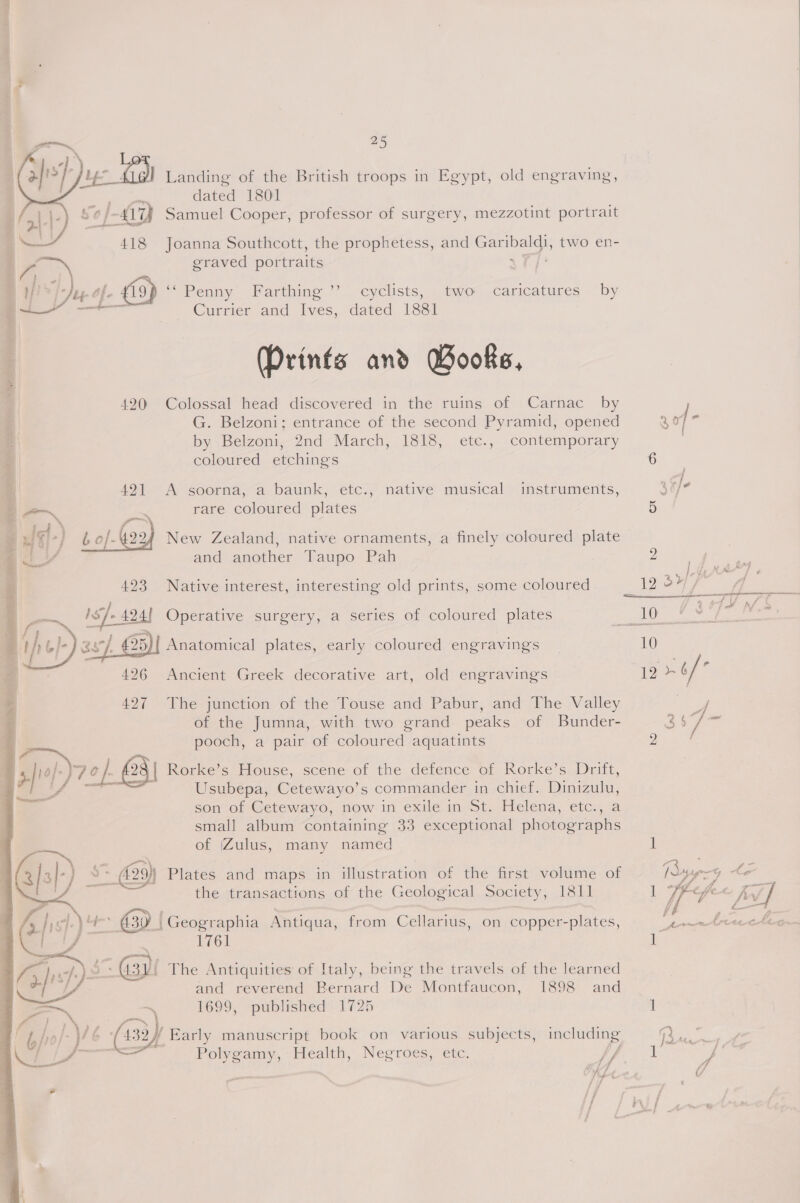 25
Lot
416 Landing of the British troops in Egypt, old engraving,
dated 1801
417 Samuel Cooper, professor of surgery, mezzotint portrait
418 Joanna Southcott, the prophetess, and Garibaldi, two en-
graved portraits
419 “Penny Farthing” cyclists, two caricatures by
Currier and Ives, dated 1881
Prints and Books,
420 Colossal head discovered in the ruins of Carnac by
G. Belzoni; entrance of the second Pyramid, opened
by Belzoni, 2nd March, 1818, etc., contemporary
coloured etchings 6
421 A soorna, a baunk, etc., native musical instruments,
rare coloured plates 5
422 New Zealand, native ornaments, a finely coloured plate
and another Taupo Pah 2
423 Native interest, interesting old prints, some coloured 12
15/- 424 Operative surgery, a series of coloured plates 10
35/- 425 Anatomical plates, early coloured engravings 10
426 Ancient Greek decorative art, old engravings 12
427 The junction of the Touse and Pabur, and The Valley
of the Jumna, with two grand peaks of Bunder-
pooch, a pair of coloured aquatints 2
70/- 428 Rorke's House, scene of the defence of Rorke's Drift,
Usubepa, Cetewayo's commander in chief. Dinizulu,
son of Cetewayo, now in exile in St. Helena, etc., a
small album containing 33 exceptional photographs
of Zulus, many named 1
429 Plates and maps in illustration of the first volume of
the transactions of the Geological Society, 1811 1
430 Geographia Antiqua, from Cellarius, on copper-plates,
1761 1
431 The Antiquities of Italy, being the travels of the learned
and reverend Bernard De Montfaucon, 1898 and
1699, published 1725 1
432 Early manuscript book on various subjects, including
Polygamy, Health, Negroes, etc. 1